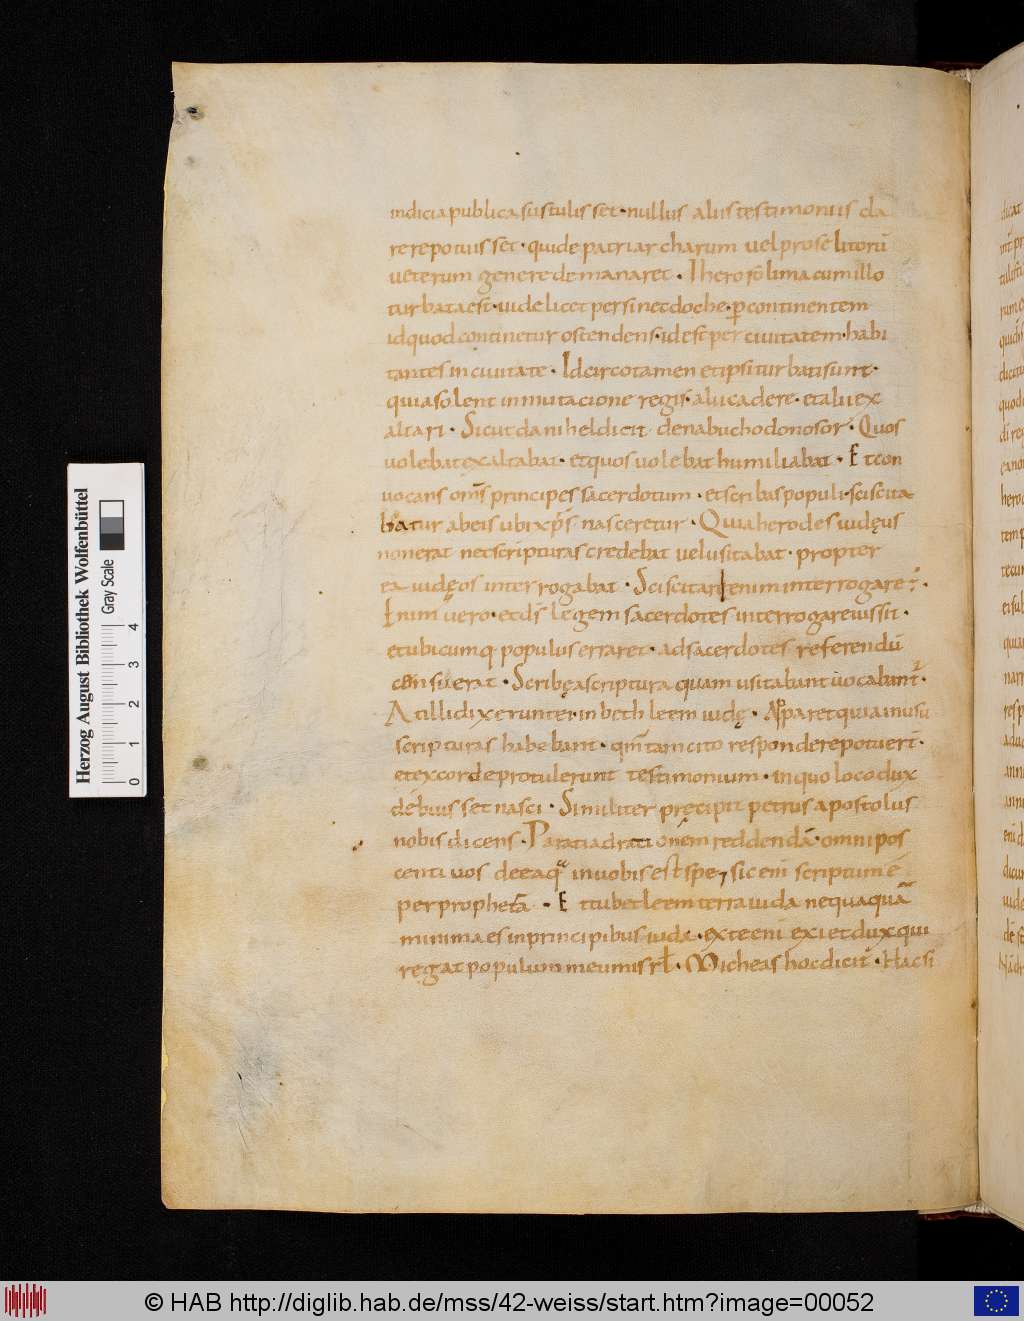 indicia publica sustulisset · nullus alius testimoniis cla
rere potuisset · qui de patriarcharum vel proselitorū
veterum genere demanaret · Iherosolima cum illo
turbata est · videlicet per sinetdoche · ꝑ continentem
id quod continetur ostendens · id est per civitatem · habi
tantes in civitate · Idcirco tamen et ipsi turbati sunt ·
quia solent in mutacione regis · alii cadere · et alii ex
altari · Sicut danihel dicit de nabuchodonosor · Quos
volebat exaltabat · et quos volebat humiliabat · Et con
vocans om̄s principes sacerdotum · et scribas populi · sciscita
batur ab eis ubi xp̄s nasceretur · Quia herodes iudęus
non erat nec scripturas credebat vel usitabat · propter
ea iudęos interrogabat · Sciscitari enim interrogare ÷ ·
Enim vero · et d̄s legem sacerdotes interrogare iussit ·
et ubicumq populus erraret · ad sacerdotes referendū
consuerat · Scribę a scriptura quam usitabant vocabant̄ ·
At illi dixerunt ei · in bethleem iudę · Apparet quia in usu
scripturas habebant · qm̄ tam cito respondere potuer̄ ·
et ex corde protulerunt testimonium · in quo loco dux
debuisset nasci · Similiter pręcipit petrus apostolus
nobis dicens · Parati ad rationem reddendā · omni pos
centi vos de ea q in vobis est spe ⁊ sic eni scriptum ē
per prophetā · Et tu betleem terra iuda nequaquā
minima es in principibus iuda · ex te eni exiet dux qui
regat populum meum isrl · Micheas hoc dicit · Hac si
Herzog August Bibliothek Wolfenbüttel
Gray Scale
0 1 2 3 4
© HAB http://diglib.hab.de/mss/42-weiss/start.htm?image=00052